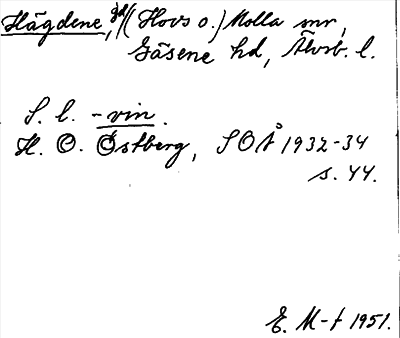 Hägdene, gd/(Hovs o.) Molla snr,
Gäsene hd, Älvsb. l.
S. l. -vin.
H. O. Östberg, SOÅ 1932-34
s. 44.
E. M-t 1951.